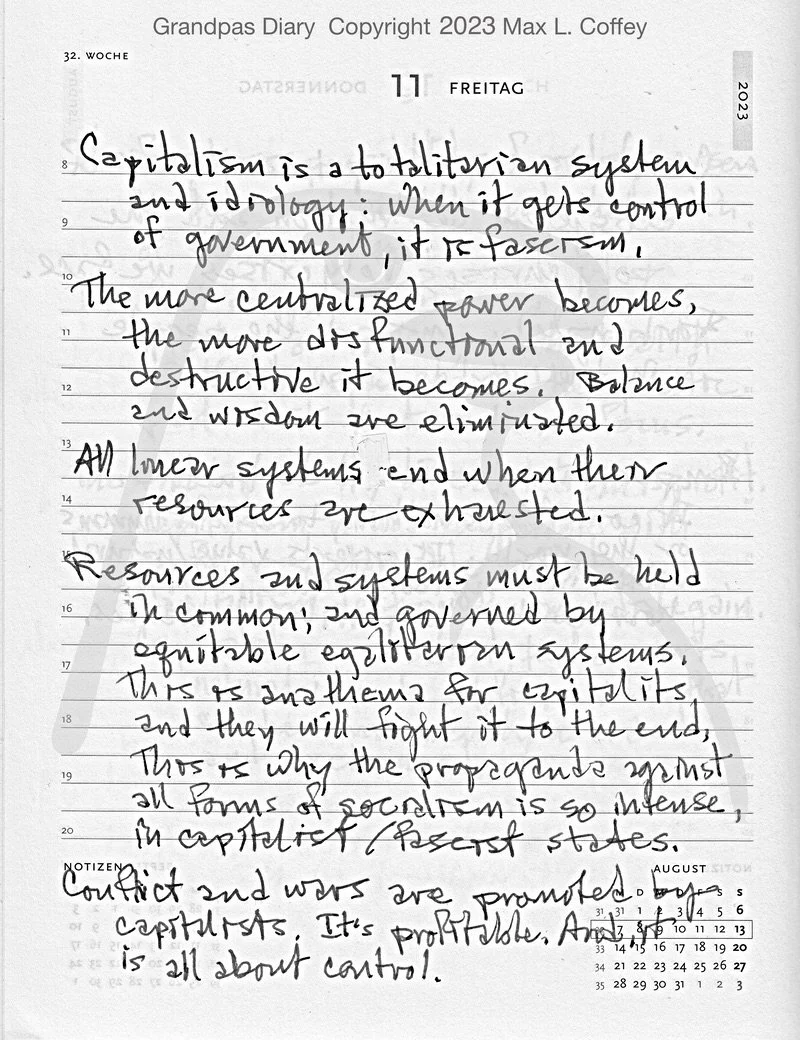 Grandpas Diary Copyright 2023 Max L. Coffey
32. WOCHE
11 FREITAG
2023
8 Capitalism is a totalitarian system
and idiology: when it gets control
9 of government, it is fascism.
10 The more centralized power becomes,
11 the more disfunctional and
12 destructive it becomes. Balance
and wisdom are eliminated.
13 All linear systems end when their
14 resources are exhausted.
15 Resources and systems must be held
16 in common; and governed by
equitable egalitarian systems.
17 This is anathema for capitalits,
18 and they will fight it to the end,
19 This is why the propaganda against
all forms of socialism is so intense,
20 in capitalist/fascist states.
NOTIZEN
AUGUST
Conflict and wars are promoted by
capitalists. It's profitable. And, it
is all about control.
D F S S
31 31 1 2 3 4 5 6
7 8 9 10 11 12 13
33 14 15 16 17 18 19 20
34 21 22 23 24 25 26 27
35 28 29 30 31 1 2 3